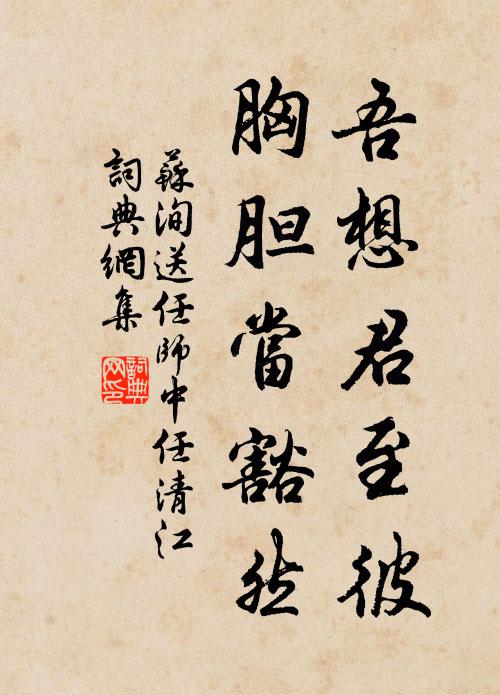 吾想君至彼
胸胆當豁然
蘇洵送任師中任清江
詞典網集
詞典網印